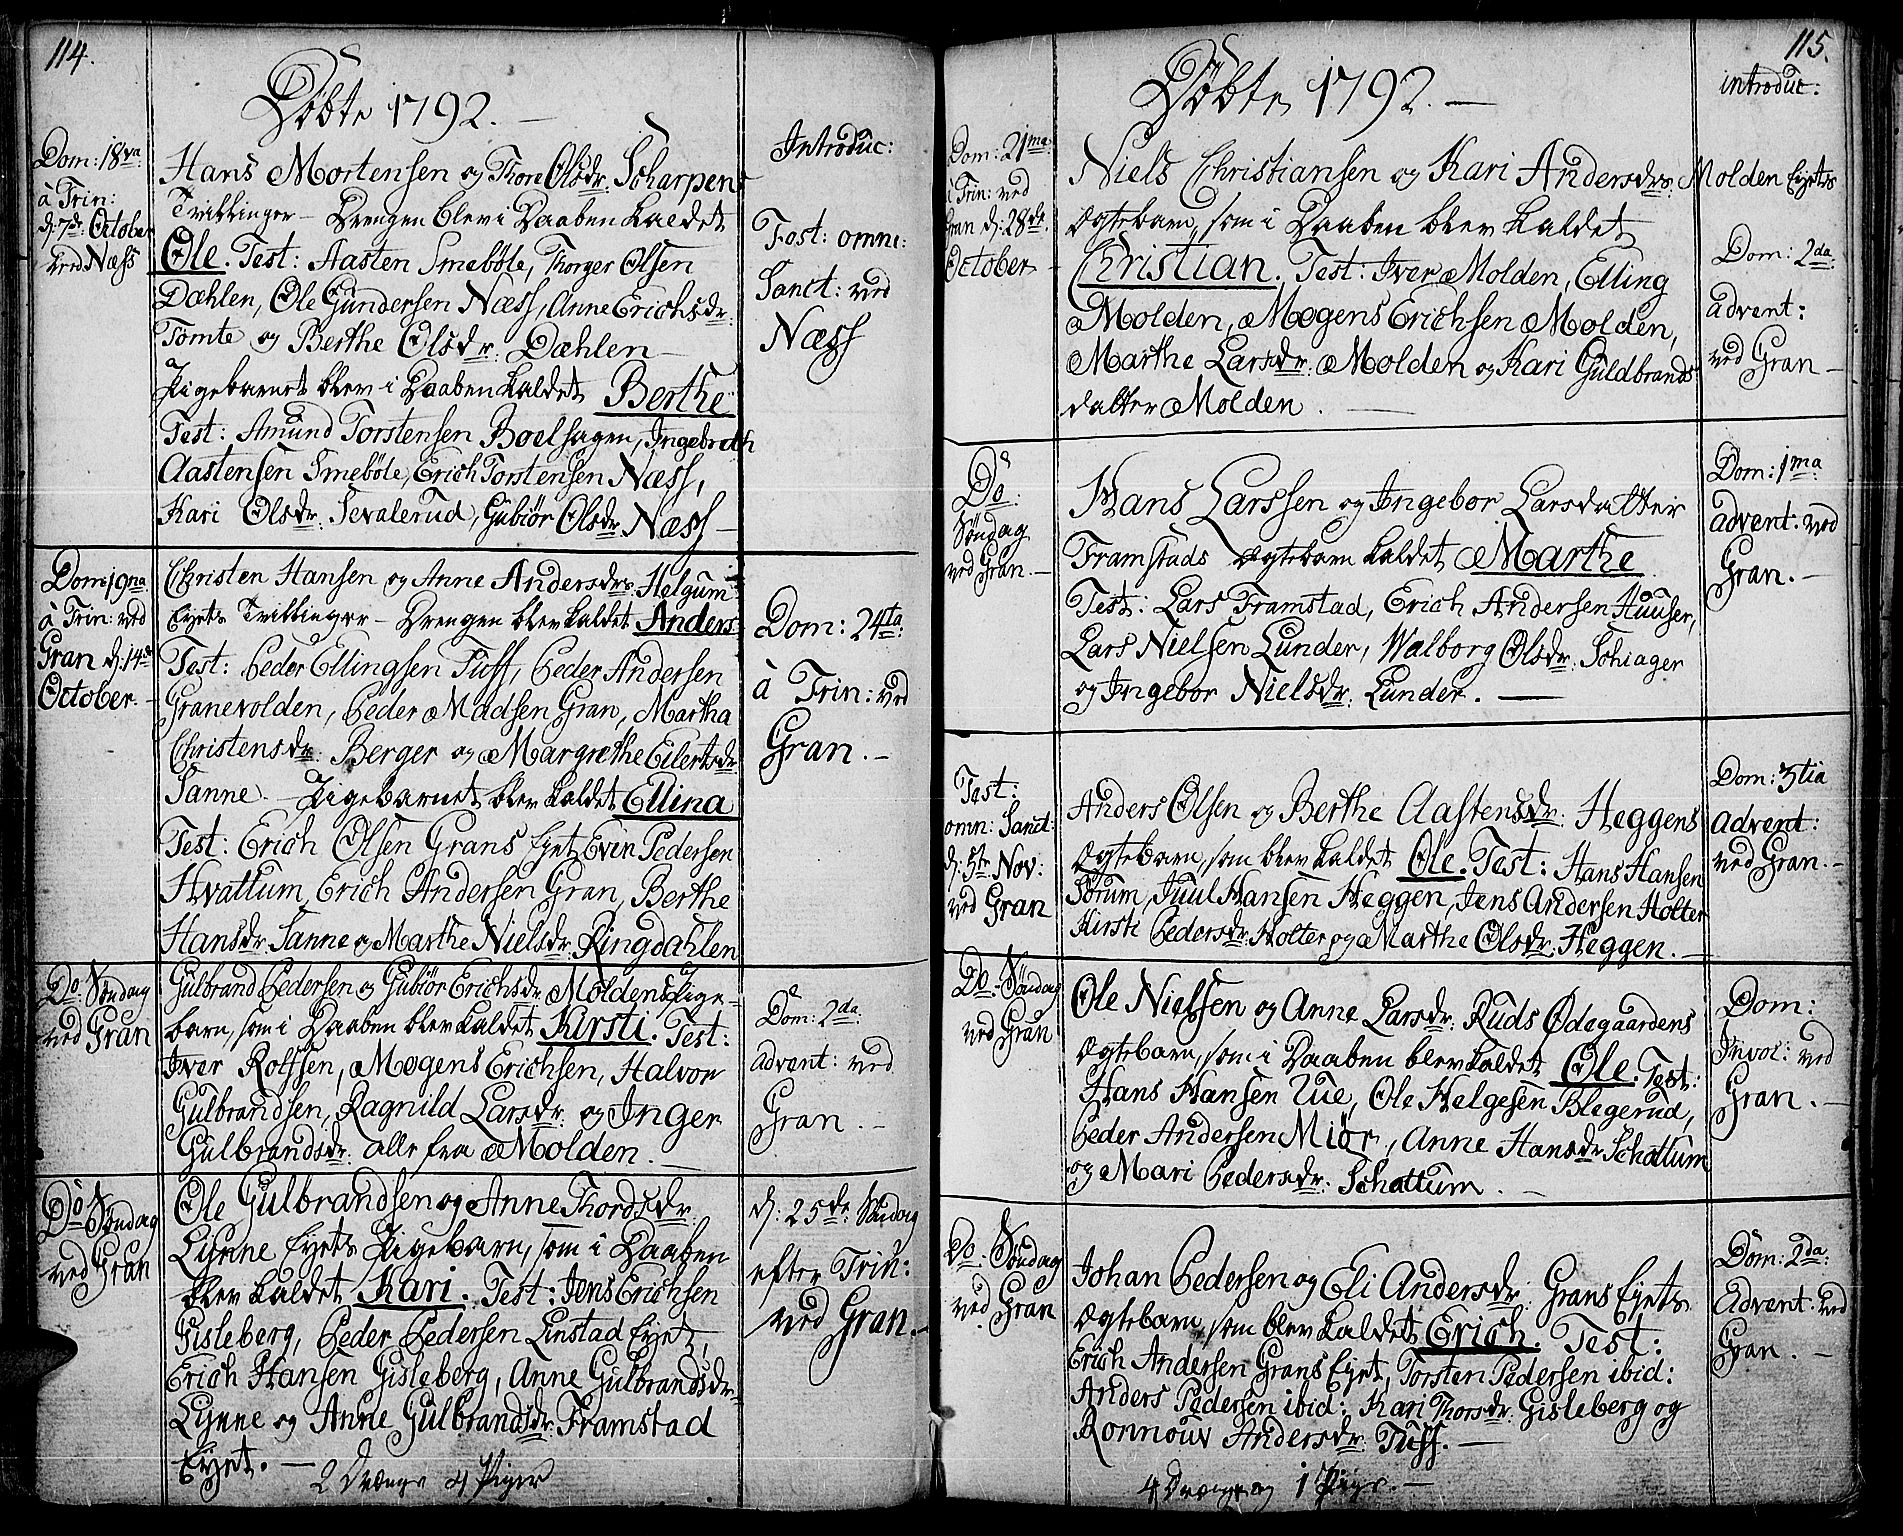 114.
Döbte 1792. —
Dom: 18va
à Trin:
d: 7de October
ved Næss
Hans Mortensen og Thore Olsdr. Scharpens
Tvillinger — Drengen blev i Daaben kaldet
Ole. Test: Aasten Smebøle, Thorger Olsen
Dæhlen, Ole Gundersen Næss, Anne Erichsdr.
Tomte og Berthe Olsdr. Dæhlen —
Pigebarnet blev i Daaben kaldet Berthe
Test: Amund Torstensen Boelhagen, Ingebreth
Aastensen Smebøle, Erich Torstensen Næss,
Kari Olsdr. Sevalerud, Gubiør Olsdr. Næss —
Introduc:
Fest: omn:
Sanct: ved
Næss
Dom: 19na
à Trin: ved
Gran d: 14de
October. —
Christen Hansen og Anne Andersdr. Helgum
Eyets Tvillinger — Drengen blev kaldet Anders
Test: Peder Ellingsen Tuff, Peder Andersen
Granevolden, Peder Madsen Gran, Martha
Christensdr. Berger og Margrethe Eilertsdr.
Sanne. — Pigebarnet blev kaldet Ellina
Test: Erich Olsen Grans Eyet, Even Pedersen
Hvattum, Erich Andersen Gran, Berthe
Hansdr. Sanne og Marthe Nielsdr. Ringdahlen
Dom: 24ta
à Trin: ved
Gran. —
Do. Søndag
ved Gran
Gulbrand Pedersen og Gubiør Erichsdr. Moldens Pige-
barn, som i Daaben blev kaldet Kirsti. Test:
Iver Rolfsen, Mogens Erichsen, Halvor
Gulbrandsen, Ragnild Larsdr. og Inger
Gulbrandsdr. alle fra Molden. —
Dom: 2da
advent: ved
Gran. —
Do Søndag
ved Gran
Ole Gulbrandsen og Anne Thordsdr.
Lynne Eyets Pigebarn, som i Daaben
blev kaldet Kari. Test: Jens Erichsen
Gisleberg, Peder Pedersen Linstad Eyet,
Erich Hansen Gisleberg, Anne Gulbrandsdr.
Lynne og Anne Gulbrandsdr. Framstad
Eyet. —
d: 25de Søndag
efter Trin:
ved Gran. —
2 Drenge 4 Piger
115.
Döbte 1792. —
introduc:
Dom: 21ma
à Trin: ved
Gran d: 28de
October —
Niels Christiansen og Kari Andersdr. Molden Eyets
Ægtebarn, som i Daaben blev kaldet
Christian. Test: Iver Molden, Elling
Molden, Mogens Erichsen Molden,
Marthe Larsdr. Molden og Kari Guldbrands
datter Molden. —
Dom: 2da
advent:
ved Gran —
Do.
Søndag
ved Gran. —
Hans Larssen og Ingebor Larsdatter
Framstads Ægtebarn kaldet Marthe
Test: Lars Framstad, Erich Andersen Huuser,
Lars Nielsen Lunder, Walborg Olsdr. Schiager
og Ingebor Nielsdr. Lunder. —
Dom: 1ma
advent: ved
Gran. —
Fest:
omn: Sanct:
d: 5te Nov:
ved Gran
Anders Olsen og Berthe Aastensdr. Heggens
Ægtebarn, som blev kaldet Ole. Test: Hans Hansen
Sørum, Juul Hansen Heggen, Jens Andersen Holter
Kirsti Pedersdr. Holter og Marthe Olsdr. Heggen. —
Dom: 3tia
advent:
ved Gran. —
Do. Søndag
ved Gran
Ole Nielsen og Anne Larsdr. Ruds Ødegaardens
Ægtebarn, som i Daaben blev kaldet Ole. Test:
Hans Hansen Tue, Ole Helgesen Blegerud,
Peder Andersen Miør, Anne Hansdr. Schattum
og Mari Pedersdr. Schattum. —
Dom:
Invoc: ved
Gran. —
Do. Søndag
ved Gran
Johan Pedersen og Eli Andersdr. Grans Eyets
Ægtebarn, som blev kaldet Erich. Test:
Erich Andersen Grans Eyet, Torsten Pedersen ibid:
Anders Pedersen ibid: Kari Thorsdr. Gisleberg og
Ronnouv Andersdr. Tuff. —
Dom: 2da
Advent: ved
Gran. —
4 Drenge og 1 Pige. —